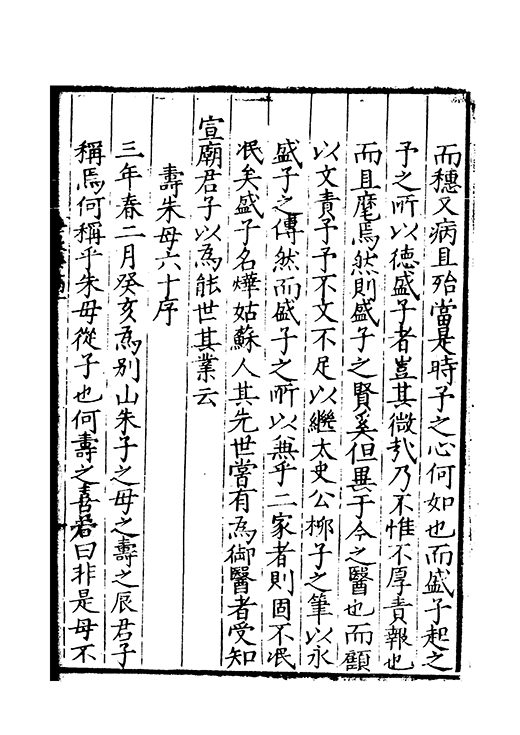 而穗又病且殆當是時予之心何如也而盛子起之
予之所以德盛子者豈其微㢤乃不惟不厚責報也
而且麾焉然則盛子之賢奚但異于今之醫也而顧
以文責予予不文不足以繼太史公栁子之筆以永
盛子之傳然而盛子之所以兼乎二家者則固不冺
冺矣盛子名燁姑蘇人其先世嘗有為御醫者受知
宣廟君子以為能世其業云
壽朱母六十序
三年春二月癸亥為別山朱子之母之壽之辰君子
稱焉何稱乎朱母從子也何壽之喜爾曰非是母不